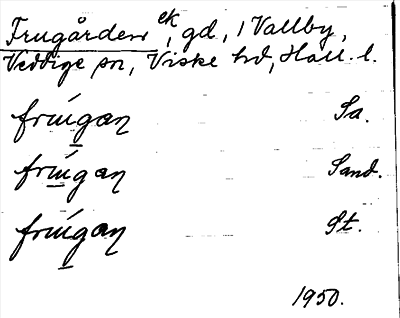 Frugården ek, gd., 1 Vallby,
Veddige sn, Viske hd, Hall. l.
frúgan Sa.
frúgan Sand.
frúgan St.
1950.